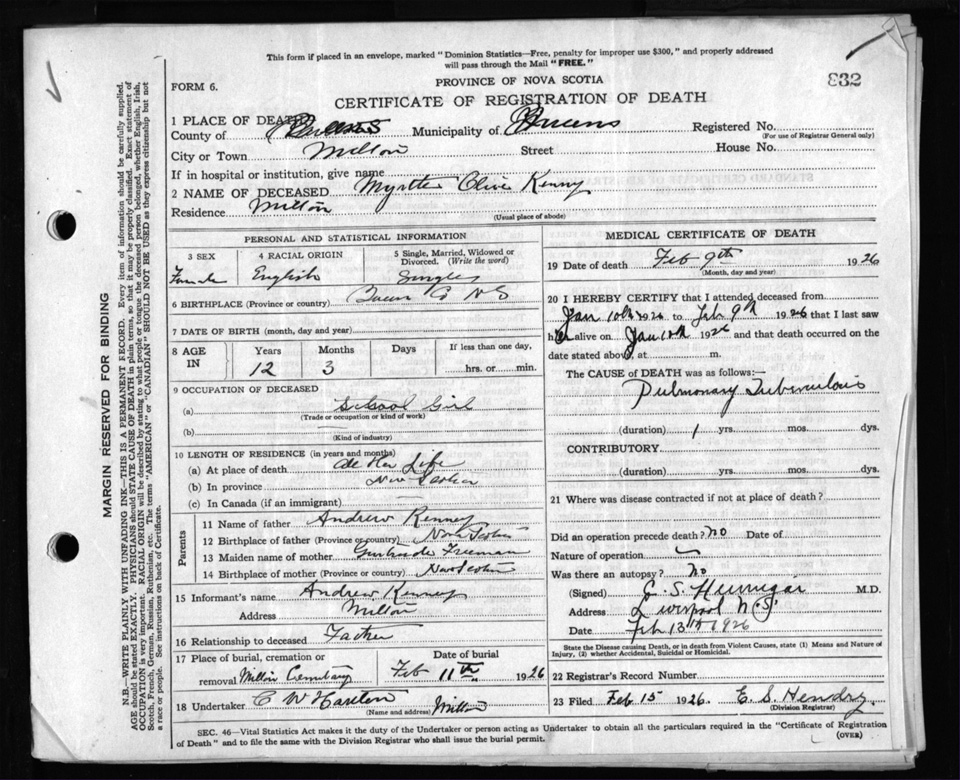 This form if placed in an envelope, marked "Dominion Statistics—Free, penalty for improper use $300," and properly addressed
will pass through the Mail "FREE."
832
FORM 6.
PROVINCE OF NOVA SCOTIA
CERTIFICATE OF REGISTRATION OF DEATH
1 PLACE OF DEATH
County of Queens Municipality of Queens Registered No.
(For use of Registrar General only)
City or Town Milton Street House No.
If in hospital or institution, give name
2 NAME OF DECEASED Myrtle Olive Kenny
Residence Milton
(Usual place of abode)
PERSONAL AND STATISTICAL INFORMATION
3 SEX 4 RACIAL ORIGIN 5 Single, Married, Widowed or Divorced. (Write the word)
Female English Single
6 BIRTHPLACE (Province or country) Queens Co N S
7 DATE OF BIRTH (month, day and year)
8 AGE IN Years Months Days If less than one day,
12 3 hrs. or min.
9 OCCUPATION OF DECEASED
(a) School Girl
(Trade or occupation or kind of work)
(b)
(Kind of industry)
10 LENGTH OF RESIDENCE (in years and months)
(a) At place of death all her Life
(b) In province Nova Scotia
(c) In Canada (if an immigrant)
Parents
11 Name of father Andrew Kenney
12 Birthplace of father (Province or country) Nova Scotia
13 Maiden name of mother Gertrude Freeman
14 Birthplace of mother (Province or country) Nova Scotia
15 Informant's name Andrew Kenney
Address Milton
16 Relationship to deceased Father
17 Place of burial, cremation or removal Milton Cemetary Date of burial Feb 11th 1926
18 Undertaker C W
(Name and address) Milton
MEDICAL CERTIFICATE OF DEATH
19 Date of death Feb 9th 1926
(Month, day and year)
20 I HEREBY CERTIFY that I attended deceased from
Jan 10th 1926 to Feb 9th 1926 that I last saw
her alive on Jan 10th 1926 and that death occurred on
date stated above, at m.
The CAUSE OF DEATH was as follows:—
Pulmonary Tuberculosis
(duration) 1 yrs. mos. dys.
CONTRIBUTORY
(duration) yrs. mos. dys.
21 Where was disease contracted if not at place of death?
Did an operation precede death? No Date of
Nature of operation
Was there an autopsy? No
(Signed) M.D.
Address Liverpool N.S.
Date Feb 13th 1926
State the Disease causing Death, or in death from Violent Causes, state (1) Means and Nature of
Injury, (2) whether Accidental, Suicidal or Homicidal.
22 Registrar's Record Number
23 Filed Feb 15 1926. E. S. Hendry.
(Division Registrar)
SEC. 46—Vital Statistics Act makes it the duty of the Undertaker or person acting as Undertaker to obtain all the particulars required in the "Certificate of Registration
of Death" and to file the same with the Division Registrar who shall issue the burial permit.
(OVER)
MARGIN RESERVED FOR BINDING
N.B.—WRITE PLAINLY WITH UNFADING INK—THIS IS A PERMANENT RECORD. Every item of information should be carefully supplied.
AGE should be stated EXACTLY. PHYSICIANS should STATE CAUSE OF DEATH in plain terms, so that it may be properly classified. Exact statement of
OCCUPATION is very important. RACIAL ORIGIN will be described by stating to what people or tongue the deceased person belonged, whether English, Irish,
Scotch, French, German, Russian, Ruthenian, etc. The terms "AMERICAN" or "CANADIAN" SHOULD NOT BE USED as they express citizenship but not
a race or people. See instructions on back of Certificate.